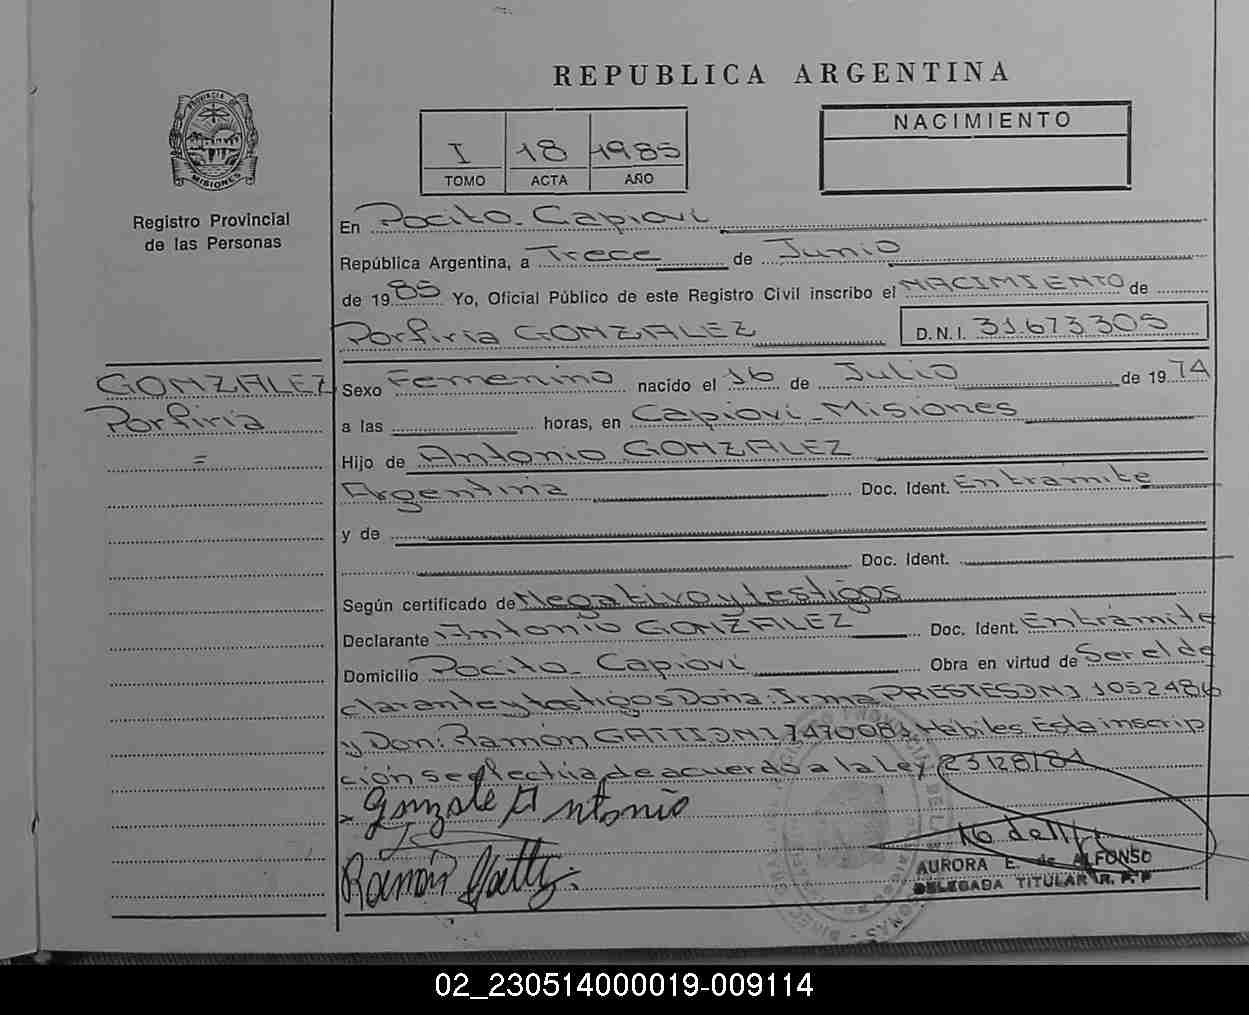 REPUBLICA ARGENTINA
PROVINCIA DE
MISIONES
Registro Provincial
de las Personas
I 18 1985
TOMO ACTA AÑO
NACIMIENTO
En Pocito - Capioví
República Argentina, a Trece de Junio
de 1985 Yo, Oficial Público de este Registro Civil inscribo el NACIMIENTO de
Porfiria GONZALEZ D.N.I. 31673305
GONZALEZ
Porfiria
=
Sexo Femenino nacido el 16 de Julio de 1974
a las horas, en Capioví - Misiones
Hijo de Antonio GONZALEZ
Argentina Doc. Ident. En trámite
y de
Doc. Ident.
Según certificado de Negativo y testigos
Declarante Antonio GONZALEZ Doc. Ident. En trámite
Domicilio Pocito - Capioví Obra en virtud de Ser el de
clarante y testigos Doña: Irma PRESTES DNI 10524816
y Don: Ramón GATTI DNI 7470083 Hábiles. Esta inscrip
ción se efectúa de acuerdo a la Ley 23128/84
Gonzale Antonio
Ramón Gatti
AURORA E. de ALFONSO
DELEGADA TITULAR R. P. P
02_230514000019-009114